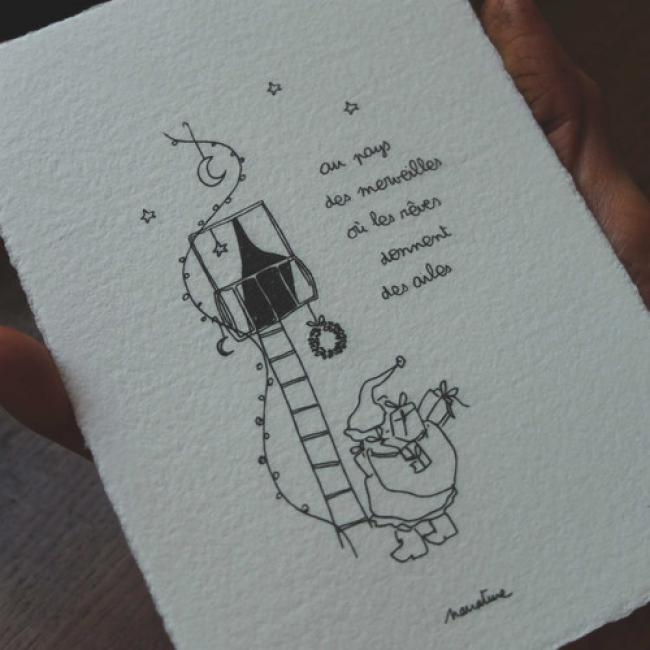 au pays
des merveilles
où les rêves
donnent
des ailes
narrature